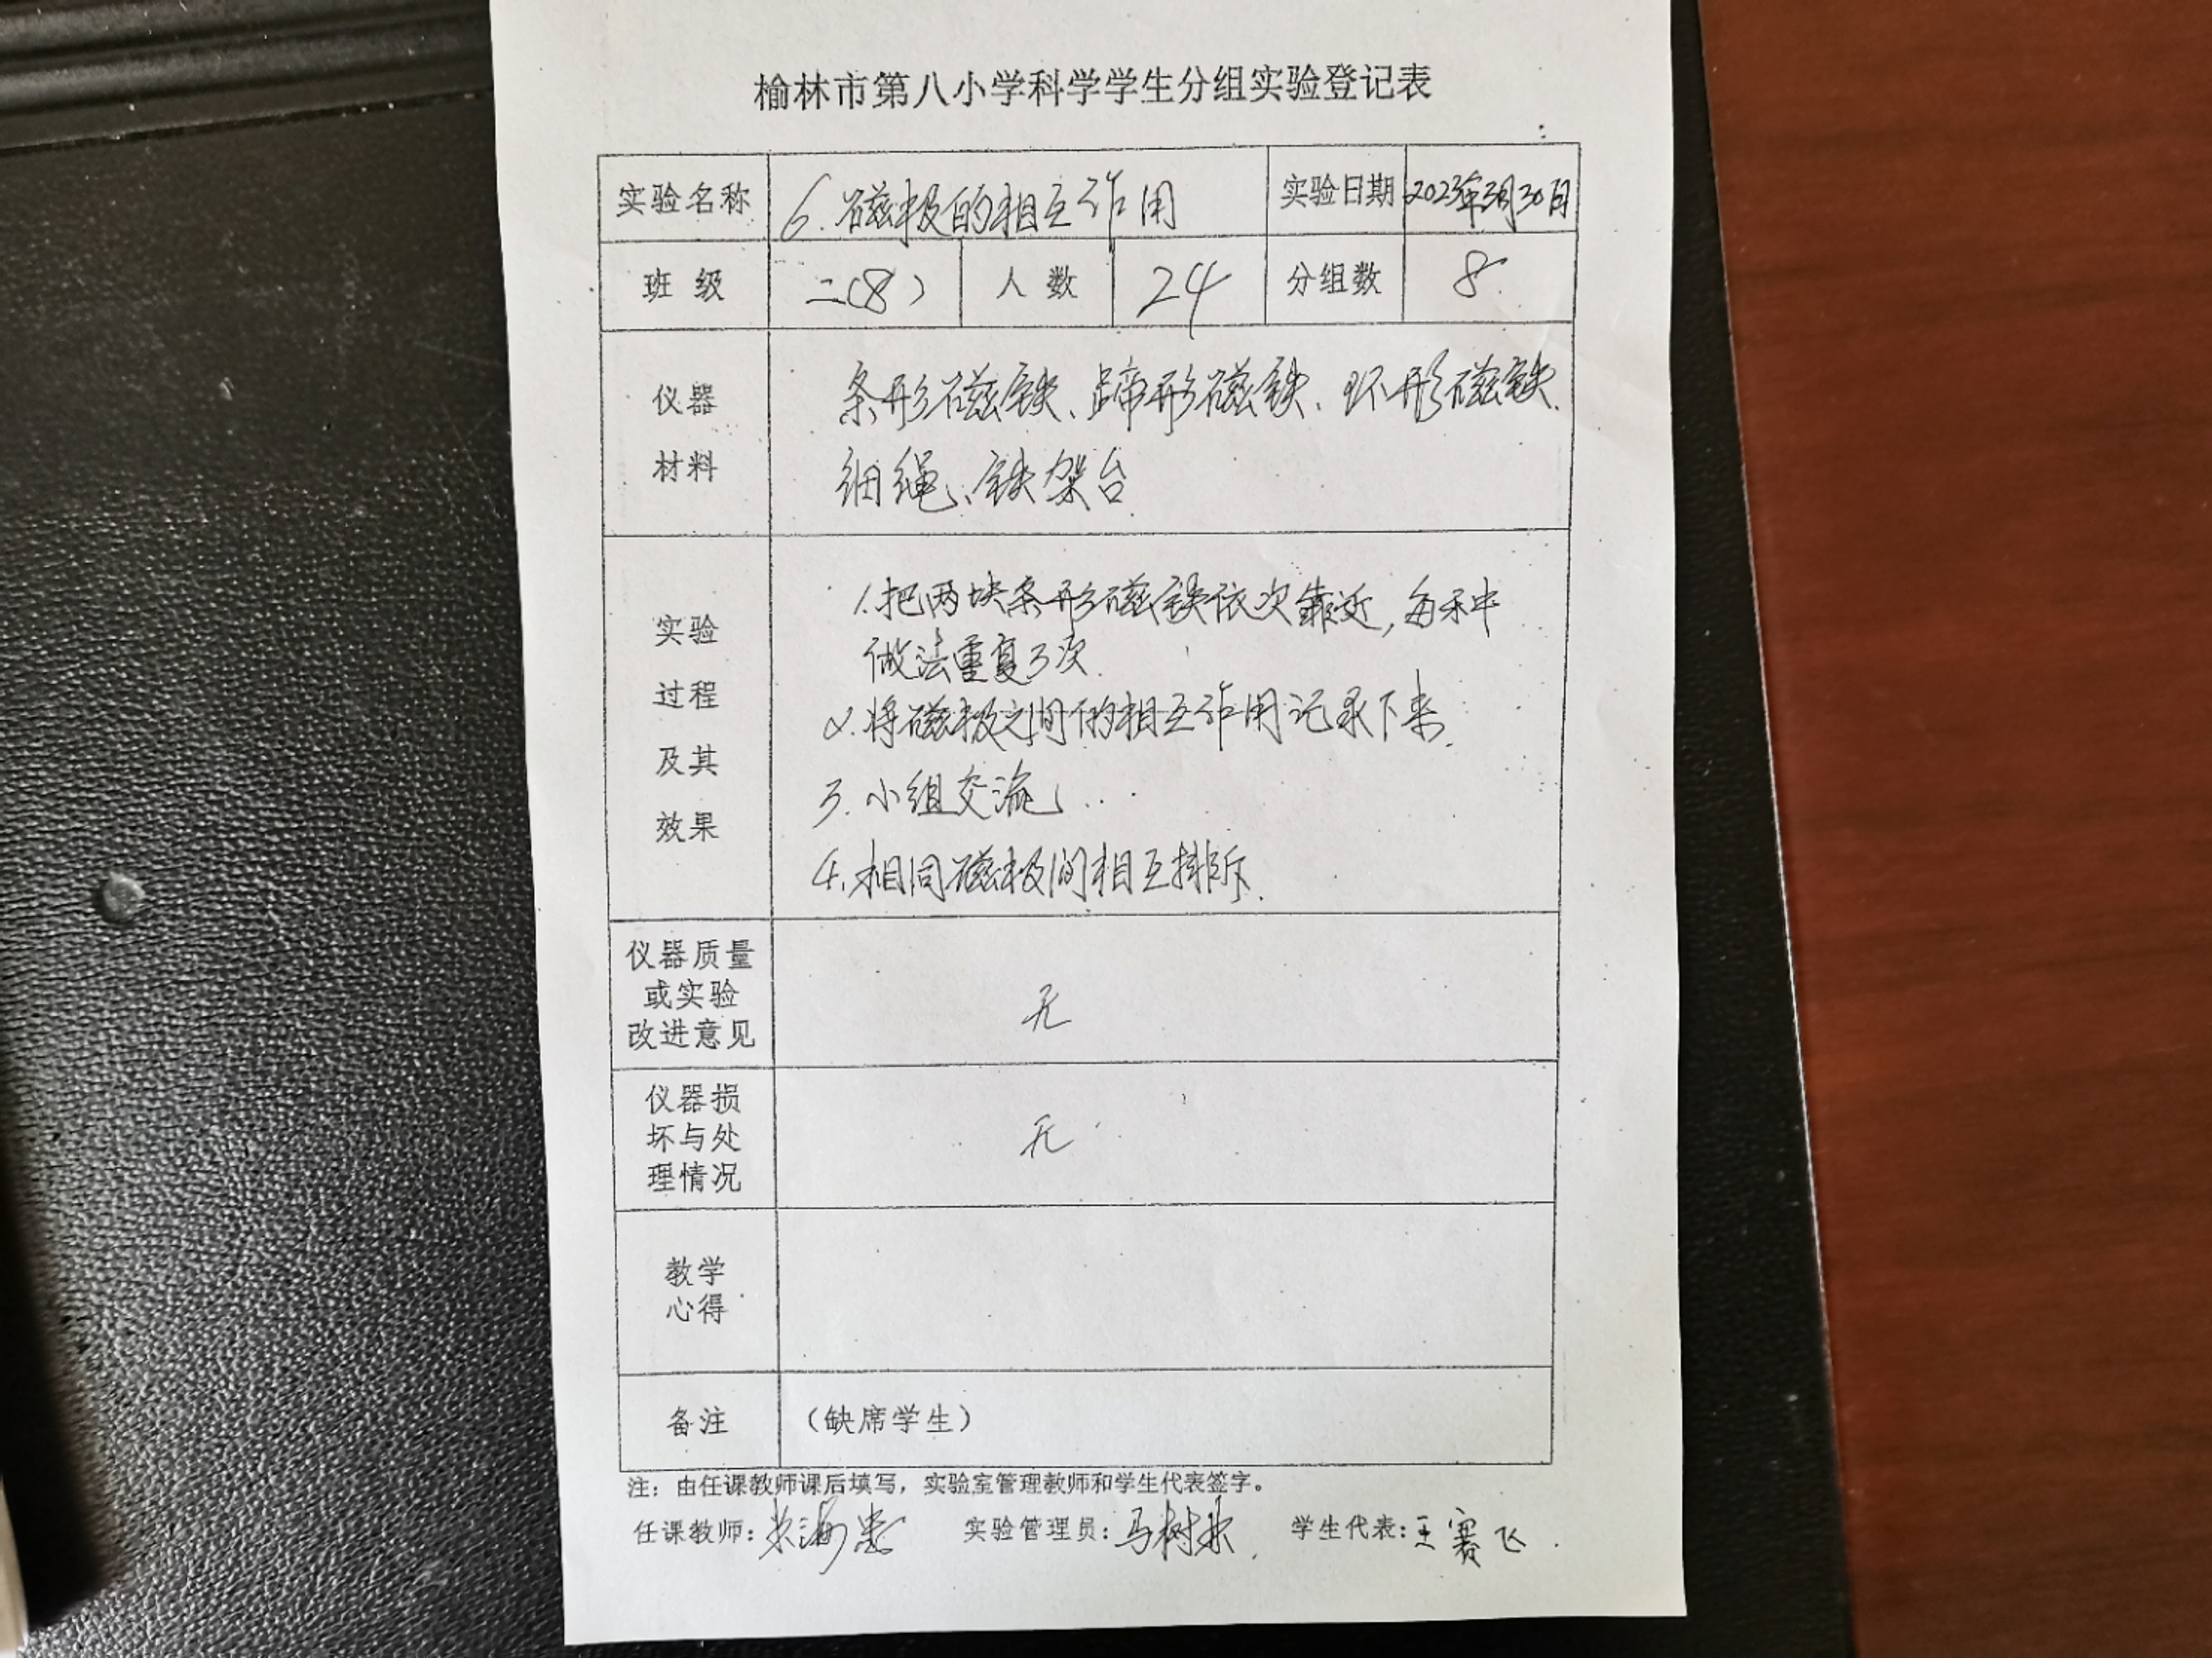 榆林市第八小学科学学生分组实验登记表
实验名称 6.磁极的相互作用 实验日期 2023年3月30日
班 级 二(8) 人 数 24 分组数 8
仪器
材料
条形磁铁、蹄形磁铁、环形磁铁.
细绳、铁架台.
实验
过程
及其
效果
1.把两块条形磁铁依次靠近,每种
做法重复3次.
2.将磁极之间的相互作用记录下来.
3.小组交流
4.相同磁极间相互排斥.
仪器质量
或实验
改进意见
无
仪器损
坏与处
理情况
无
教学
心得
备注 (缺席学生)
注：由任课教师课后填写，实验室管理教师和学生代表签字。
任课教师: 实验管理员: 马树 学生代表: 王赛飞.